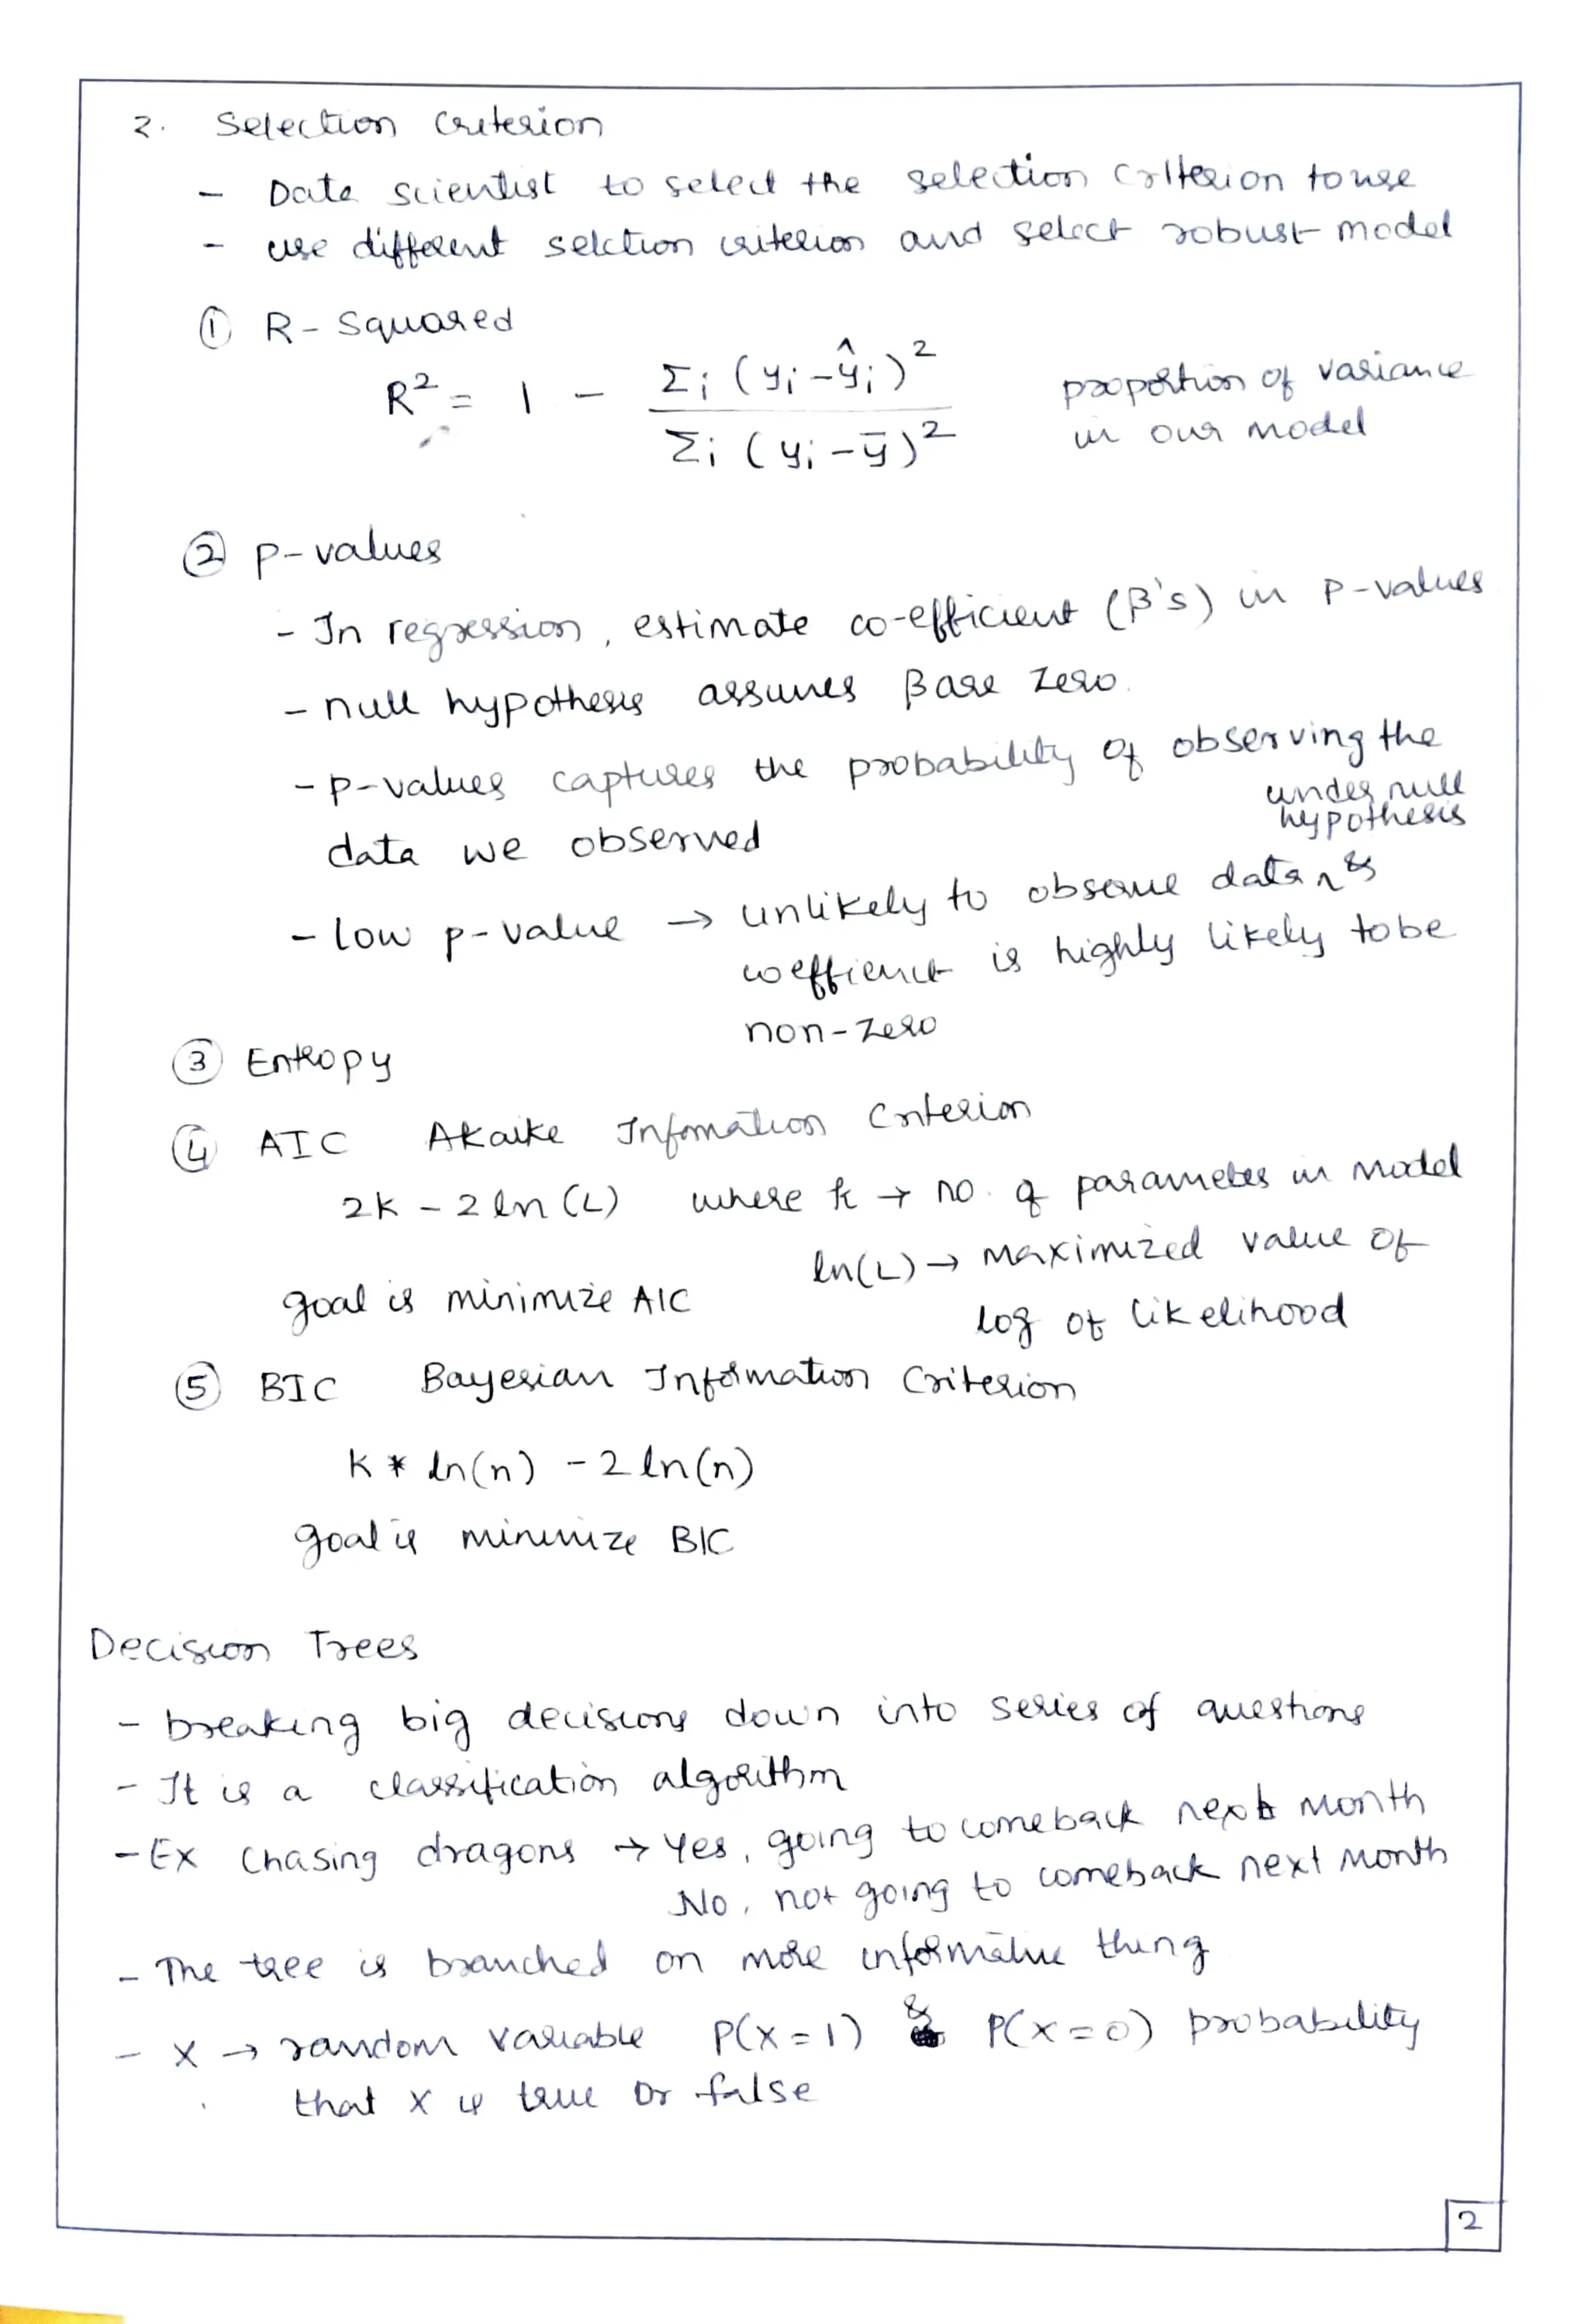 2. Selection Criterion
- Data scientist to select the selection criterion to use
- use different selction criterion and select robust model
① R-Squared
R² = 1 - Σi (yi - ŷi)² / Σi (yi - ȳ)² proportion of variance in our model
② p-values
- In regression, estimate co-efficient (β's) in P-values
- null hypothesis assumes β are zero.
- p-values captures the probability of observing the
data we observed
- low p-value → unlikely to observe data ^ under null hypothesis &
coeffienct is highly likely to be
non-zero
③ Entropy
④ AIC Akaike Infomation Criterion
2k - 2 ln (L) where k → no. of parameters in model
ln(L) → maximized value of
goal is minimize AIC log of likelihood
⑤ BIC Bayesian Information Criterion
k * ln(n) - 2 ln(n)
goal is minimize BIC
Decision Trees
- breaking big decisions down into series of questions
- It is a classification algorithm
- Ex Chasing dragons → Yes, going to comeback next month
No, not going to comeback next month
- The tree is branched on more informative thing
- X → random variable P(X = 1) & P(X = 0) probability
that X is true or false
2